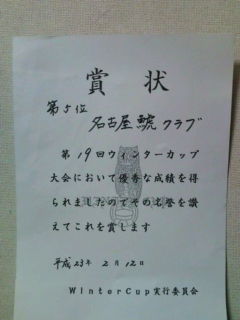 賞状
第5位
名古屋鯱クラブ
第19回ウィンターカップ
大会において優秀な成績を得
られましたのでその名誉を讃
えてこれを賞します
平成23年 2月 12日
WinterCup実行委員会